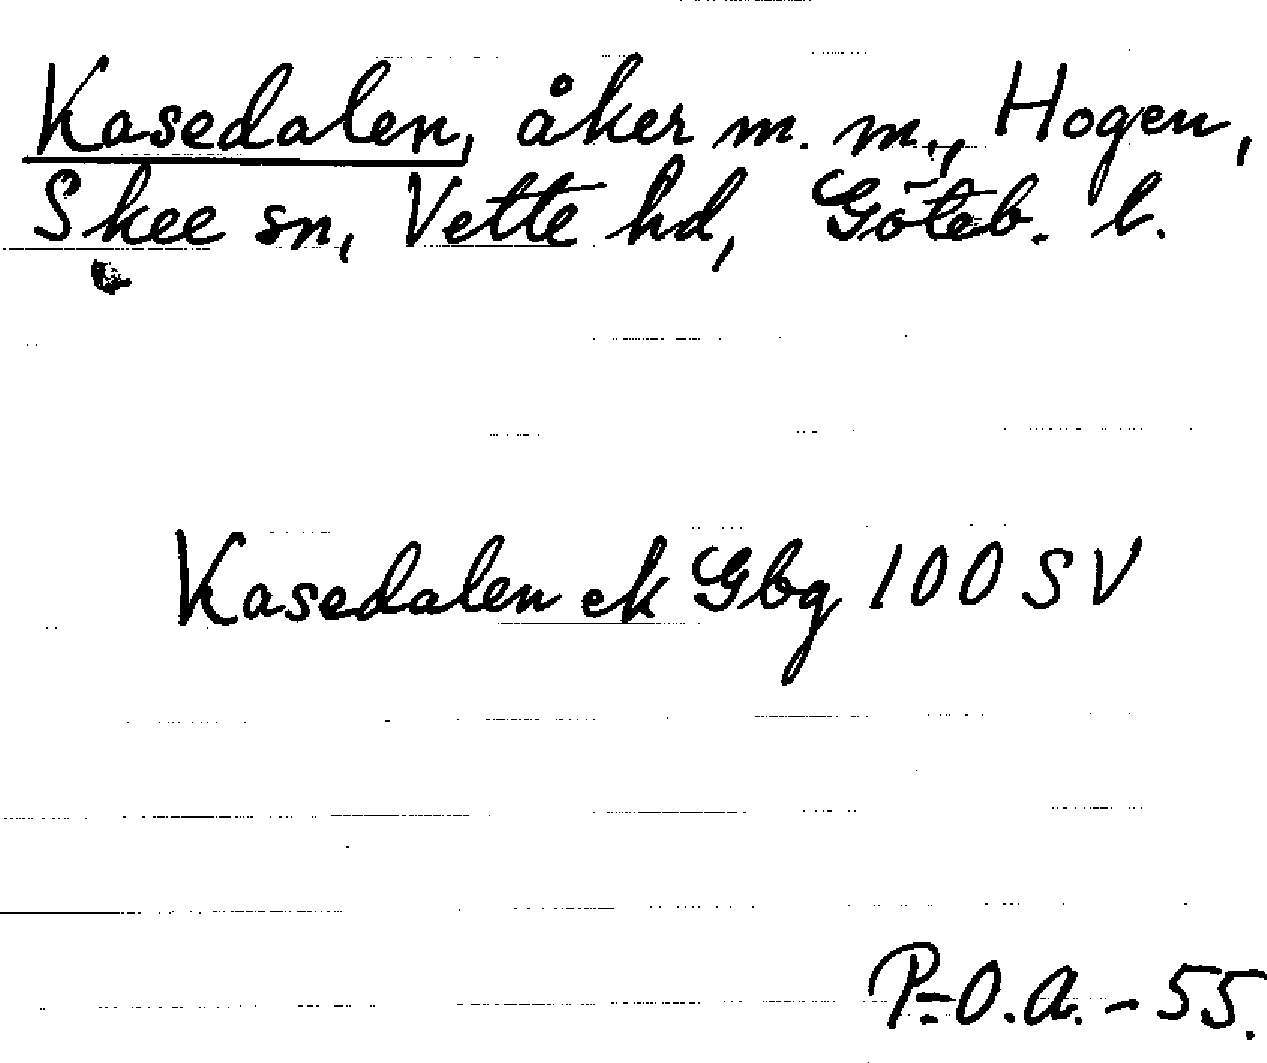 Kasedalen, åker m. m., Hogen,
Skee sn, Vette hd, Göteb. l.
Kasedalen ek Gbg 100 SV
P.-O.A. - 55.